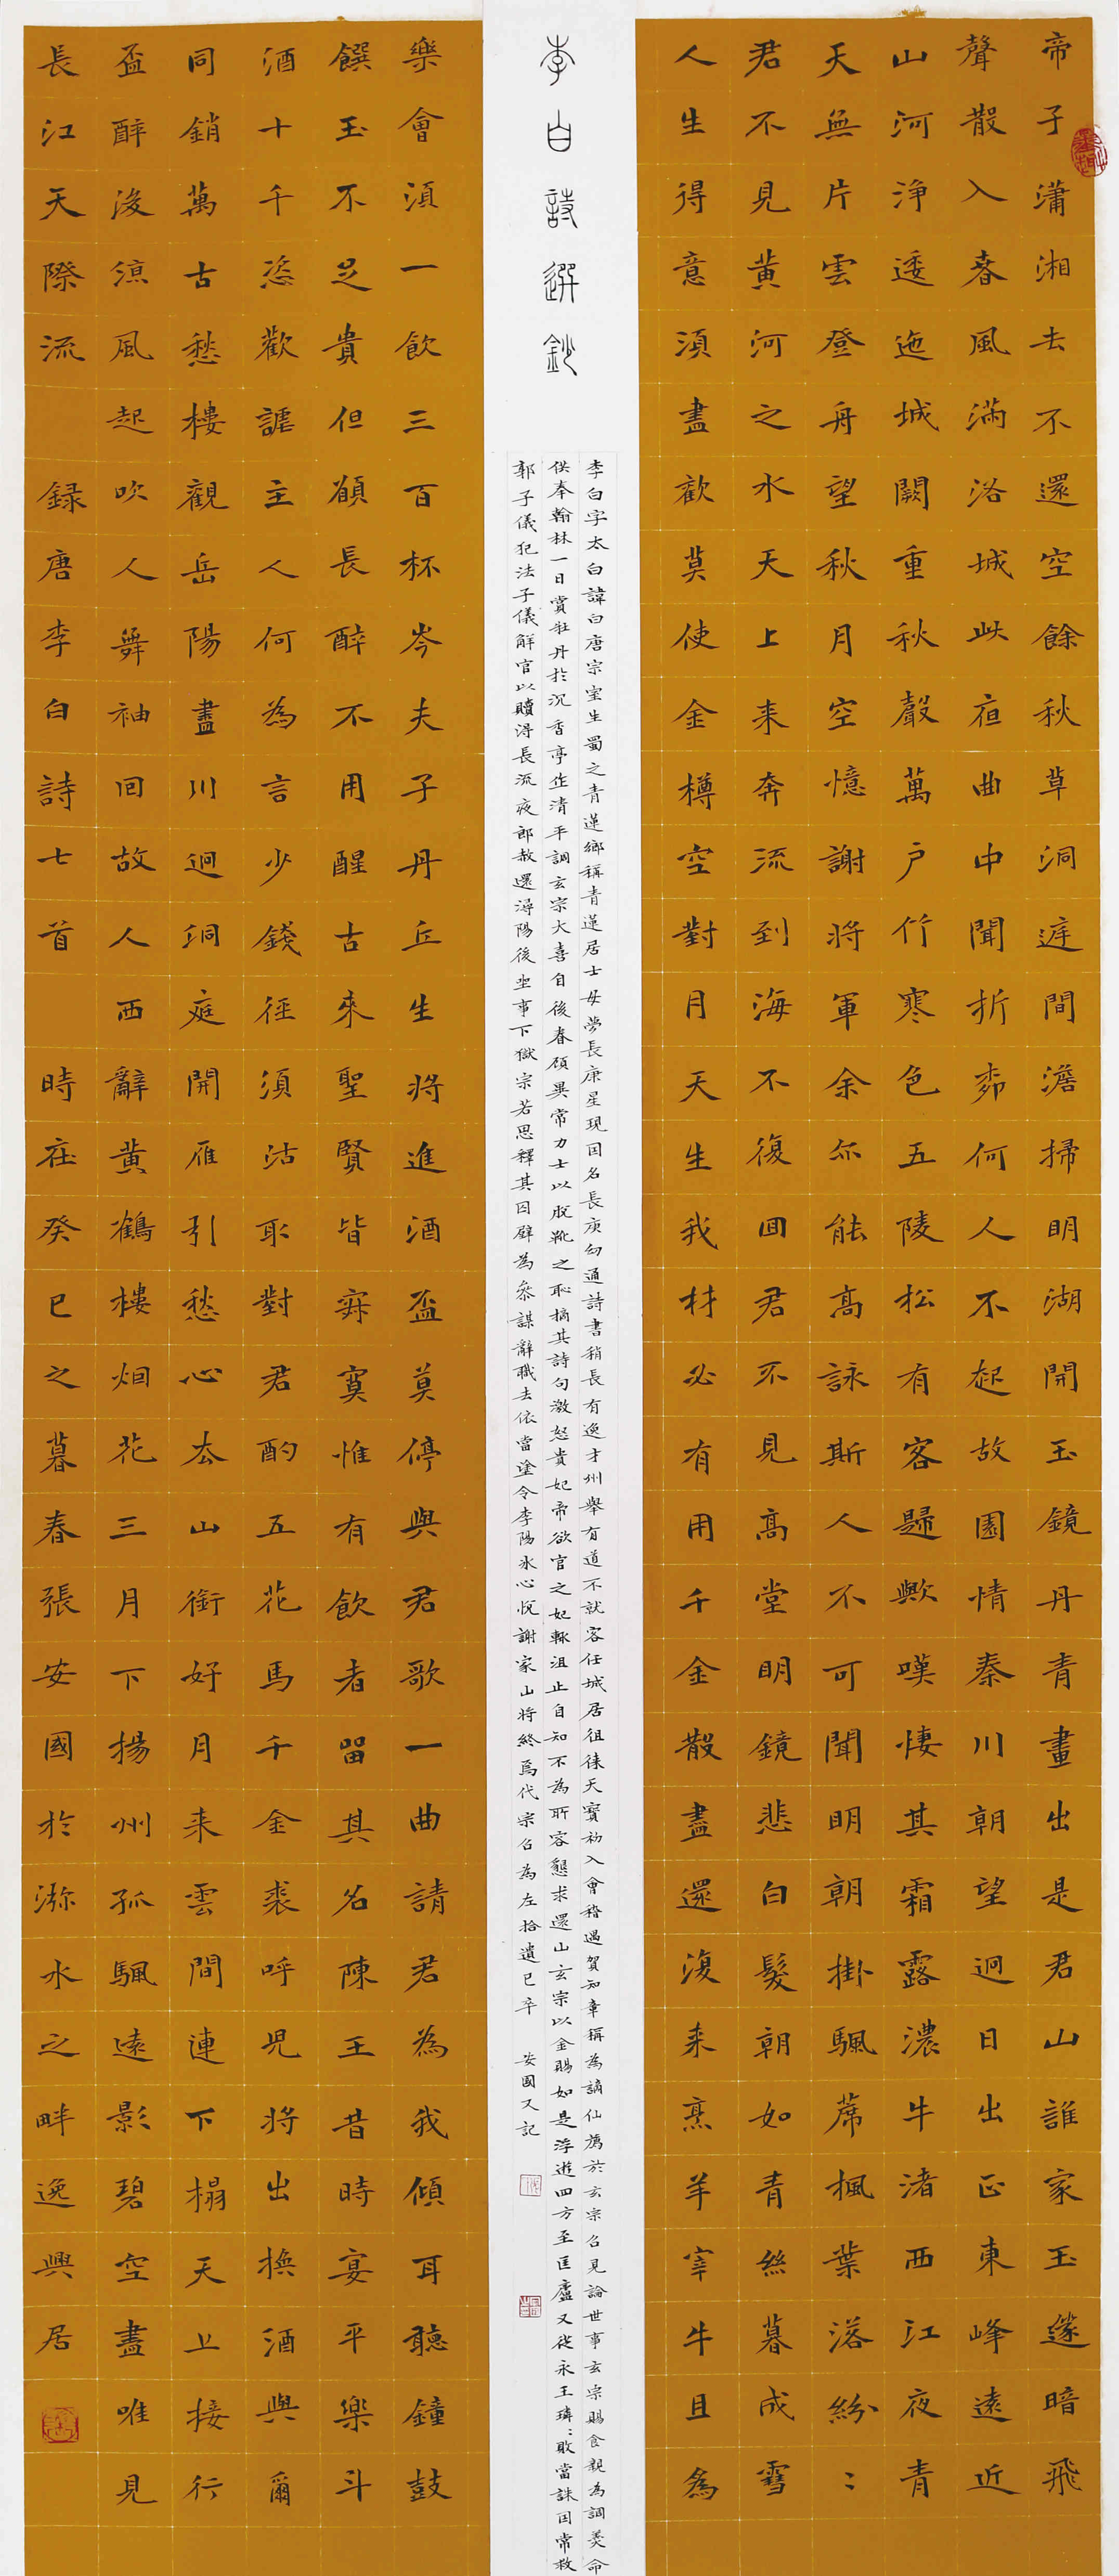 帝子瀟湘去不還空餘秋草洞庭間澹掃明湖開玉鏡丹青畫出是君山誰家玉篴暗飛
聲散入春風滿洛城此夜曲中聞折柳何人不起故園情秦川朝望迥日出正東峰遠近
山河淨逶迤城闕重秋聲萬戶竹寒色五陵松有客歸歟嘆悽其霜露濃牛渚西江夜青
天無片雲登舟望秋月空憶謝將軍余亦能高詠斯人不可聞明朝掛颿席楓葉落紛:
君不見黃河之水天上来奔流到海不復回君不見高堂明鏡悲白髮朝如青絲暮成雪
人生得意須盡歡莫使金樽空對月天生我材必有用千金散盡還復来烹羊宰牛且為
李白詩選鈔
李白字太白諱白唐宗室生蜀之青蓮鄉稱青蓮居士母夢長庚星現因名長庚幼通詩書稍長有逸才州舉有道不就客任城居徂徠天寶初入會稽遇賀知章稱為謫仙薦於玄宗召見論世事玄宗賜食親為調羹命
供奉翰林一日賞牡丹於沉香亭作清平調玄宗大喜自後眷顧異常力士以脫靴之恥摘其詩句激怒貴妃帝欲官之妃輒沮止自知不為所容懇求還山玄宗以金賜如是浮遊四方至匡廬又從永王璘:敗當誅因常救
郭子儀犯法子儀解官以贖得長流夜郎赦還潯陽後坐事下獄宗若思釋其囚辟為參謀辭職去依當塗令李陽冰心悅謝家山將終焉代宗召為左拾遺已卒 安國又記
樂會須一飲三百杯岑夫子丹丘生將進酒盃莫停與君歌一曲請君為我傾耳聽鐘鼓
饌玉不足貴但願長醉不用醒古來聖賢皆寂寞惟有飲者留其名陳王昔時宴平樂斗
酒十千恣歡謔主人何為言少錢徑須沽取對君酌五花馬千金裘呼兒將出換酒與爾
同銷萬古愁樓觀岳陽盡川迥洞庭開雁引愁心去山銜好月来雲間連下榻天上接行
盃醉後涼風起吹人舞袖回故人西辭黃鶴樓烟花三月下揚州孤颿遠影碧空盡唯見
長江天際流 録唐李白詩七首 時在癸巳之暮春張安國於瀰水之畔逸興居